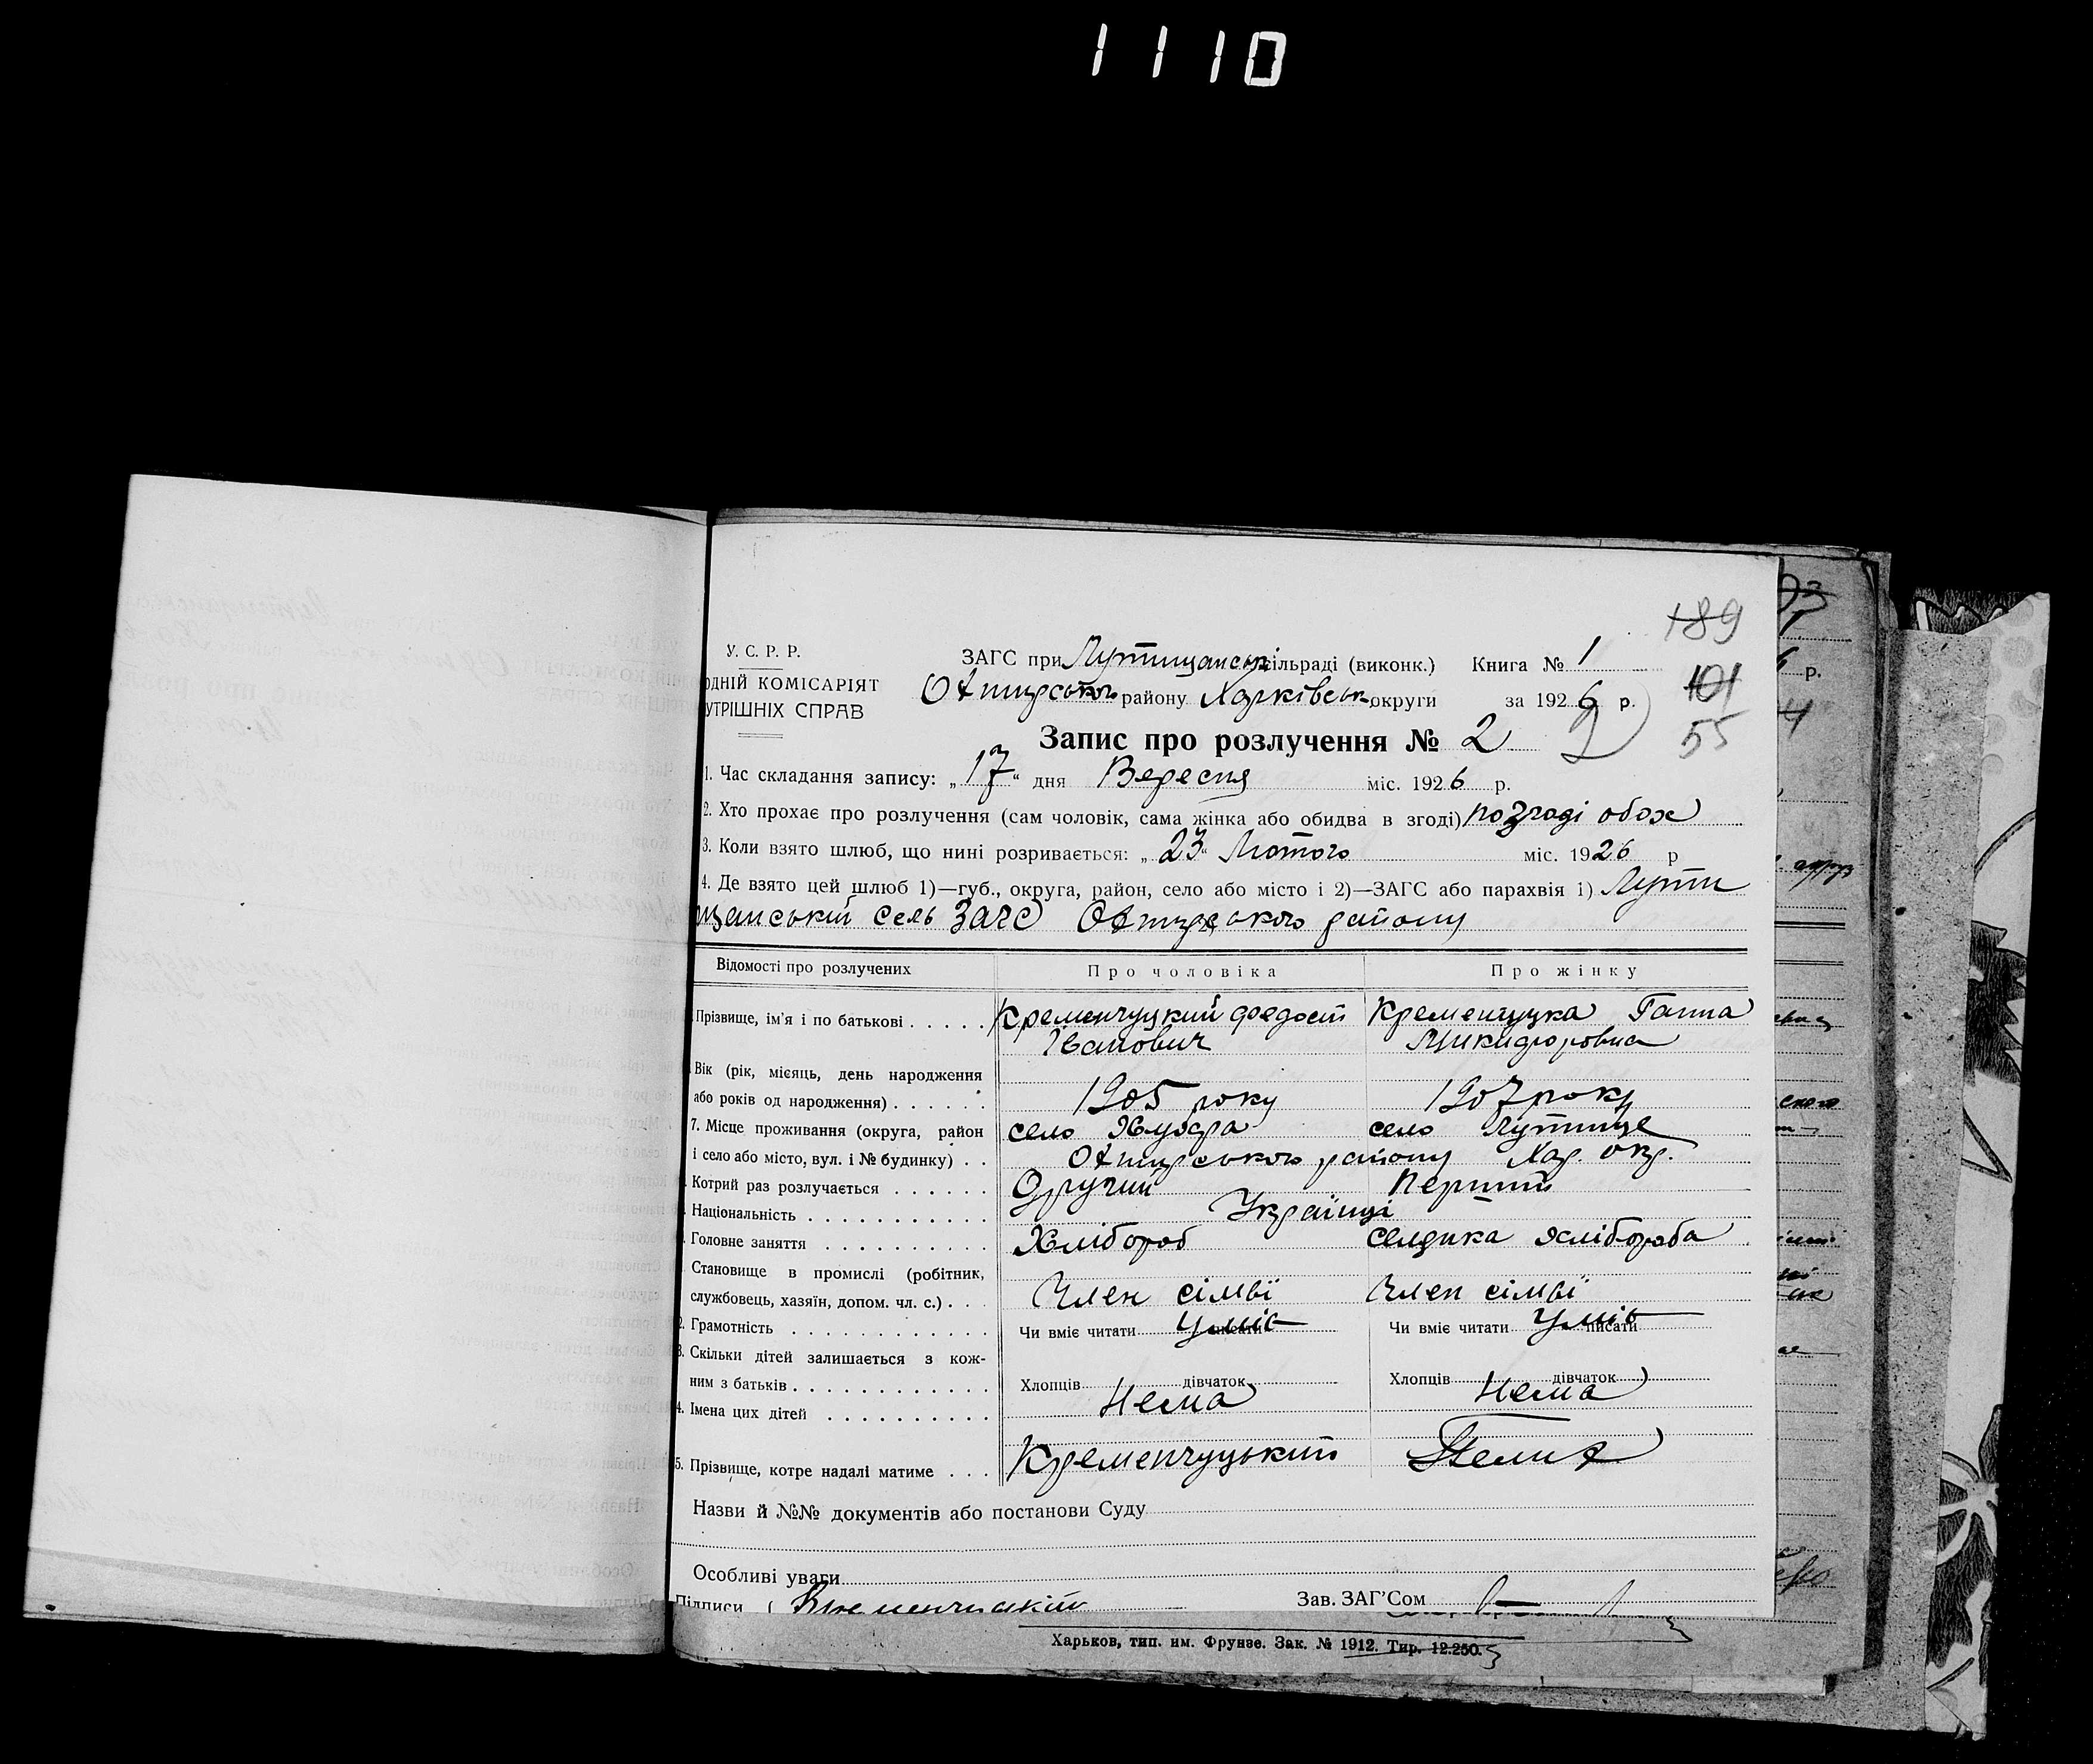 1110
189
У. С. Р. Р.
ЗАГС при Лутищанськ сільраді (виконк.) Книга № 1
101
ОДНІЙ КОМІСАРІЯТ
Охтирського району Харківськ округи за 1926 р.
УТРІШНІХ СПРАВ
55
Запис про розлучення № 2 2
1. Час складання запису: „17“ дня Вересня міс. 1926 р.
2. Хто прохає про розлучення (сам чоловік, сама жінка або обидва в згоді) по згоді обох
3. Коли взято шлюб, що нині розривається: „23“ Лютого міс. 1926 р
4. Де взято цей шлюб 1)—губ., округа, район, село або місто і 2)—ЗАГС або парахвія 1) Лути
щанській сель ЗАГС Охтирського району
Відомості про розлучених Про чоловіка Про жінку
Прізвище, ім'я і по батькові . . . . . Кременчуцкий Федост Кременчуцка Ганна
Іванович Микифоровна
Вік (рік, місяць, день народження
або років од народження) . . . . . . 1905 року 1907 року
7. Місце проживання (округа, район село Хухра село Лутище
і село або місто, вул. і № будинку) . . Охтирського району Хар. окр.
Котрий раз розлучається . . . . . . Другий Перший
Національність . . . . . . . . . . . Українці
Головне заняття . . . . . . . . . . Хлібороб селянка хлібороба
Становище в промислі (робітник,
службовець, хазяїн, допом. чл. с.) . . . Член сімьї Член сімьї
2. Грамотність . . . . . . . . . . . . Чи вміє читати уміє писати Чи вміє читати уміє писати
3. Скільки дітей залишається з кож-
ним з батьків . . . . . . . . . . . . Хлопців дівчаток Хлопців дівчаток
Нема Нема
4. Імена цих дітей . . . . . . . . . .
5. Прізвище, котре надалі матиме . . . Кременчуцький Пелих
Назви й №№ документів або постанови Суду
Особливі уваги
Підписи ( Зав. ЗАГ'Сом
Харьков, тип. им. Фрунзе. Зак. № 1912. Тир. 12.250.